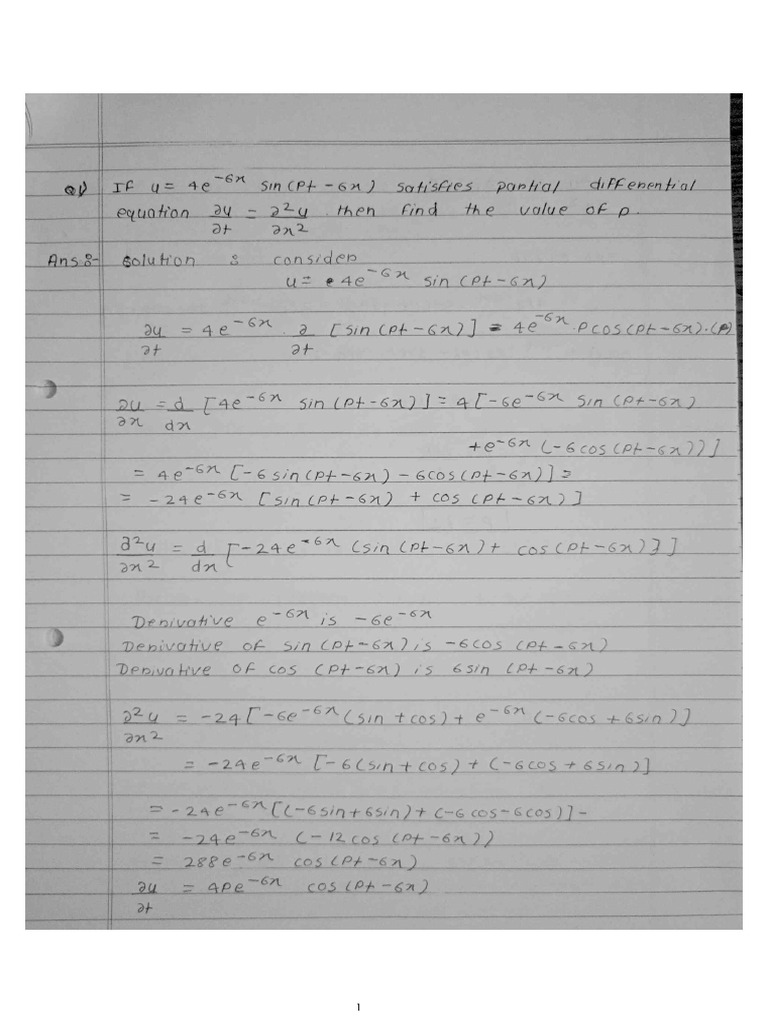 Q1) If u = 4e^{-6x} sin(pt - 6x) satisfies partial differential
equation ∂u/∂t = ∂²u/∂x² then find the value of p.
Ans:- Solution : consider
u = 4e^{-6x} sin(pt-6x)
∂u/∂t = 4e^{-6x} . ∂/∂t [sin(pt-6x)] = 4e^{-6x}.pcos(pt-6x).(p)
∂u/∂x = d/dx [4e^{-6x} sin(pt-6x)] = 4[-6e^{-6x} sin(pt-6x)
+e^{-6x}(-6cos(pt-6x))]
= 4e^{-6x}[-6sin(pt-6x)-6cos(pt-6x)] =
= -24e^{-6x} [sin(pt-6x) + cos(pt-6x)]
∂²u/∂x² = d/dx [-24e^{-6x} (sin(pt-6x)+ cos(pt-6x)}]
Derivative e^{-6x} is -6e^{-6x}
Derivative of sin(pt-6x) is -6cos(pt-6x)
Derivative of cos (pt-6x) is 6sin (pt-6x)
∂²u/∂x² = -24[-6e^{-6x}(sin+cos)+e^{-6x}(-6cos+6sin)]
= -24e^{-6x} [-6(sin+cos)+(-6cos+6sin)]
= -24e^{-6x}[(-6sin+6sin)+(-6cos-6cos)]-
= -24e^{-6x} (-12cos(pt-6x))
= 288e^{-6x} cos(pt-6x)
∂u/∂t = 4pe^{-6x} cos(pt-6x)
1